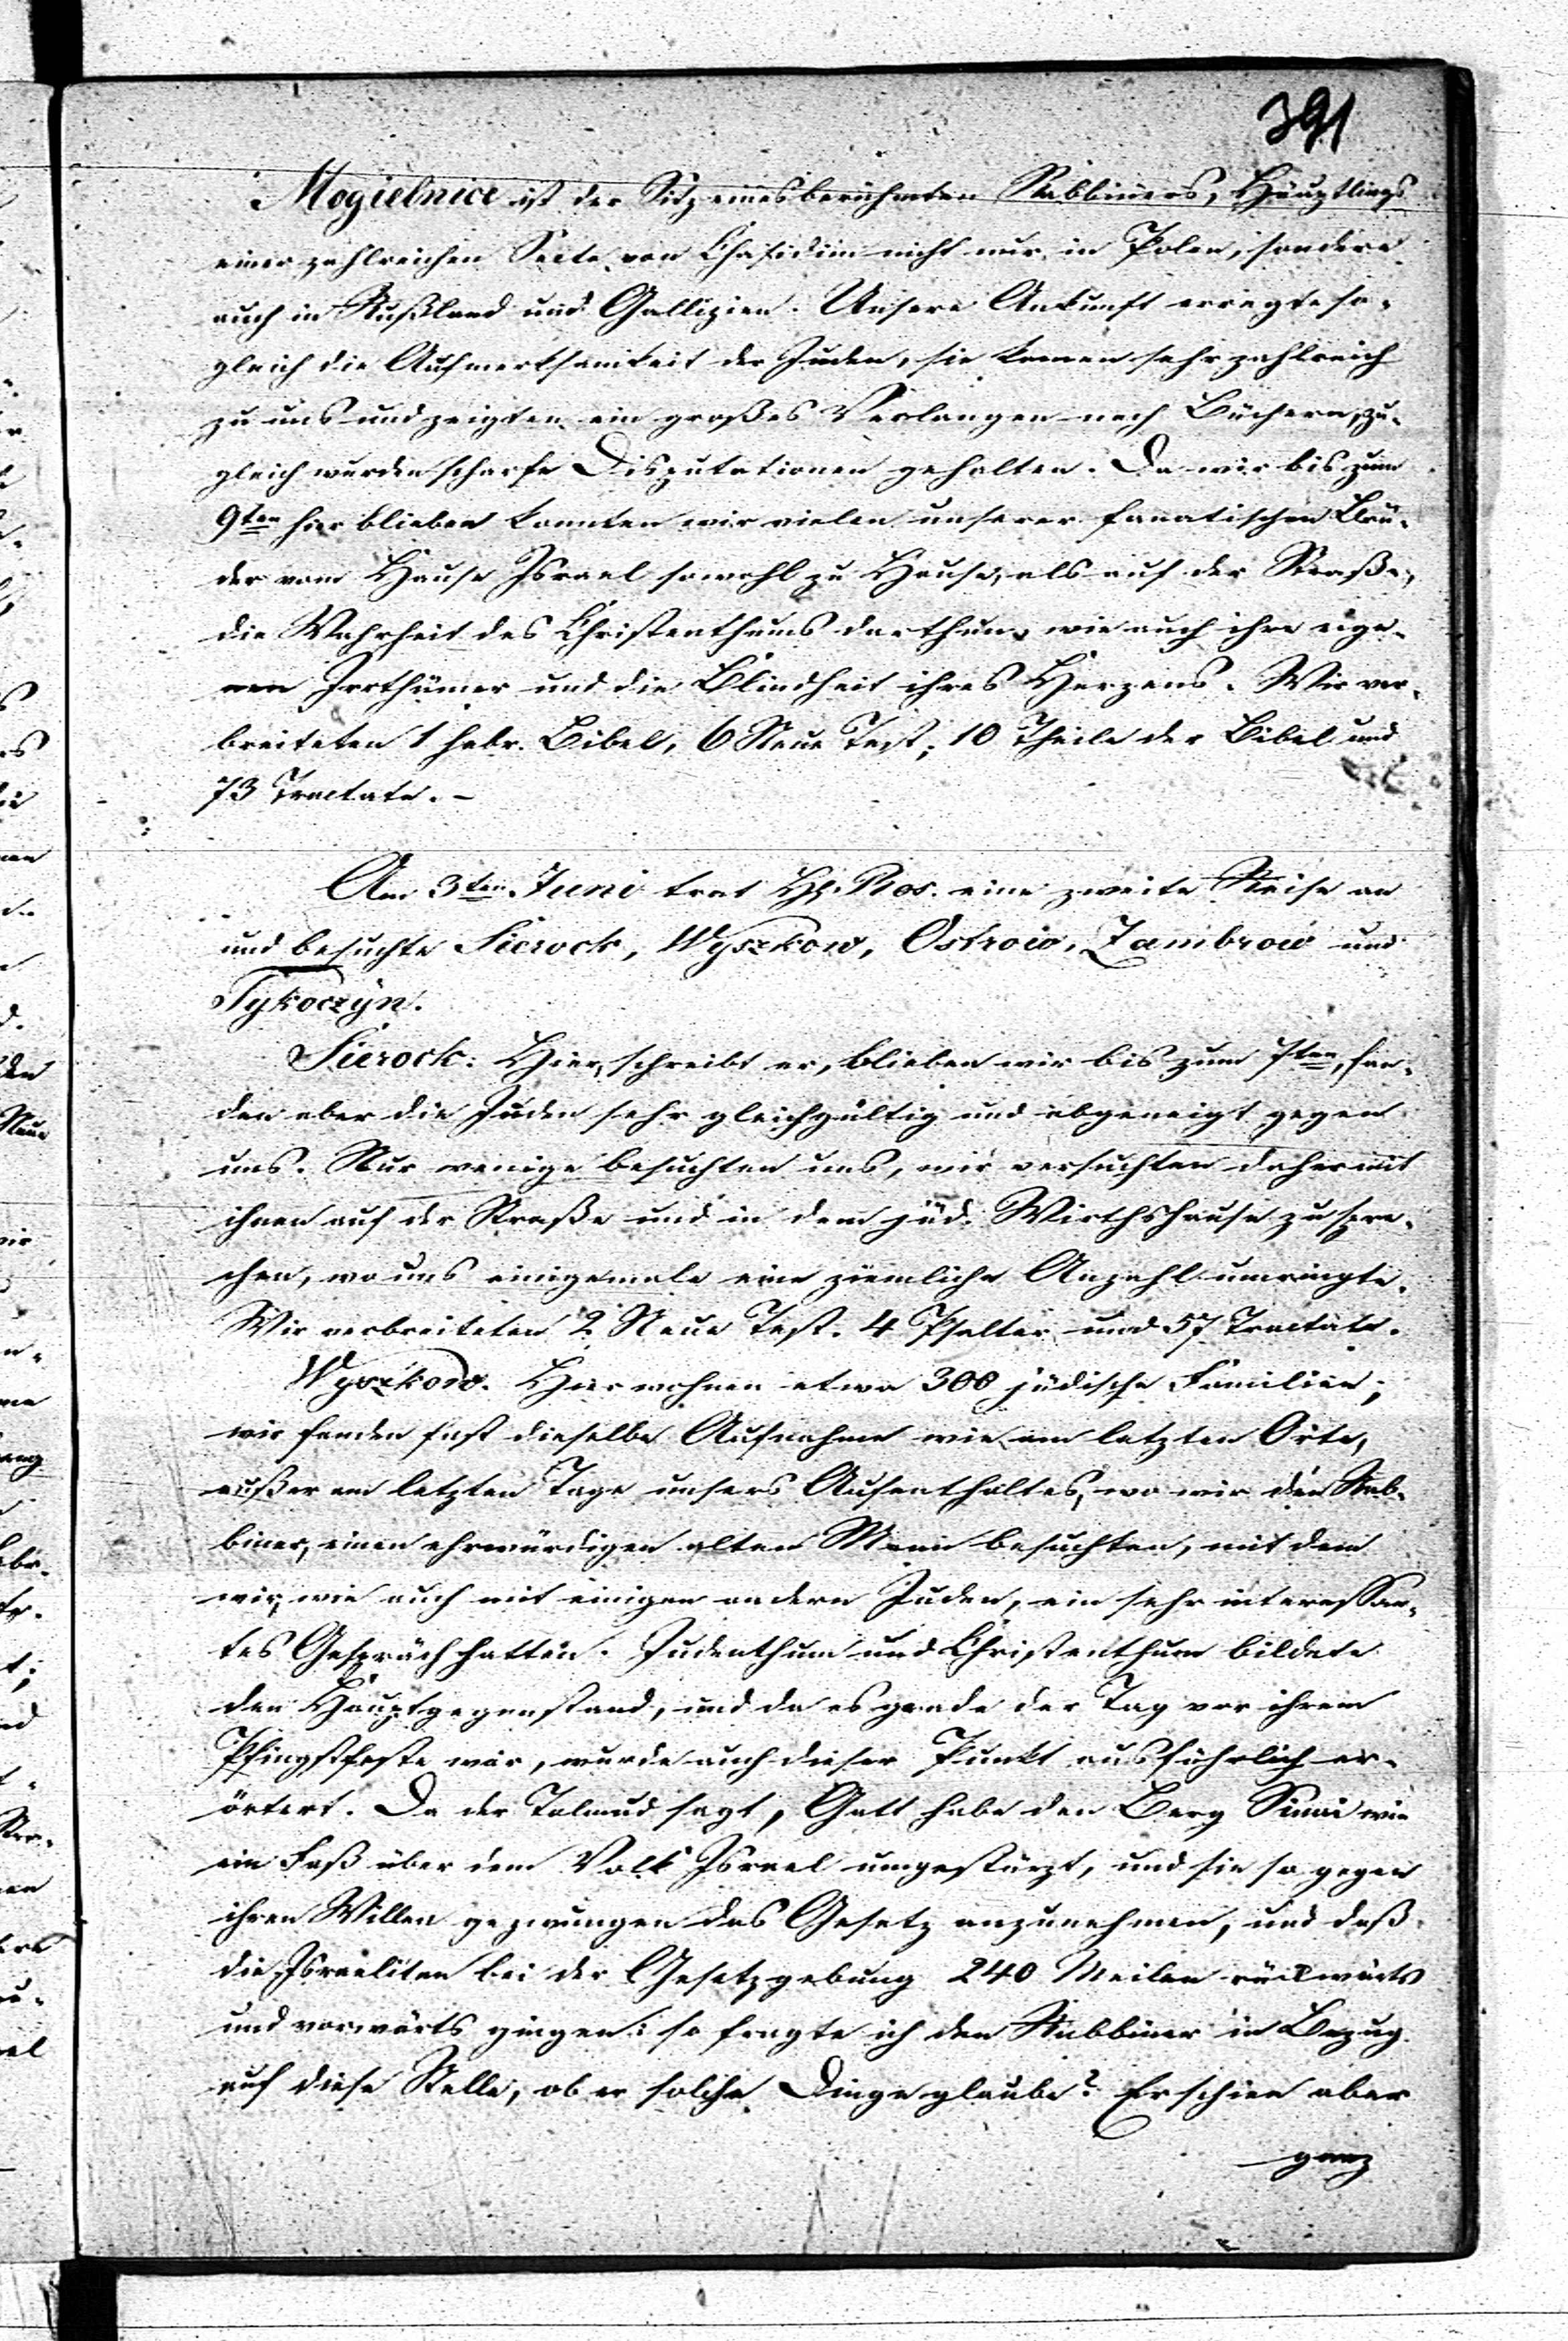 391
Mogielnice ist der Sitz eines berühmten Rabbiners, Häuptlings
einer zahlreichen Secte von Chasidim nicht nur in Polen, sondern
auch in Rußland und Gallizien. Unsere Ankunft erregte so-
gleich die Aufmerksamkeit der Juden, sie kamen sehr zahlreich
zu uns und zeigten ein großes Verlangen nach Büchern, zu-
gleich wurden scharfe Disputationen gehalten. Da wir bis zum
9ten hier blieben konnten wir vielen unserer fanatischen Brü-
der vom Hause Israel sowohl zu Hause, als auf der Straße,
die Wahrheit des Christenthums darthun, wie auch ihre eige-
nen Irrthümer und die Blindheit ihres Herzens. Wir ver-
breiteten 1 hebr. Bibel, 6 Neue Test, 10 Theile der Bibel und
73 Tractate. –
Am 3ten Juni trat H. Ros. eine zweite Reise an
und besuchte Sierock, Wyszkow, Ostrow, Zambrow und
Tykoczyn.
Sierock: Hier, schreibt er, blieben wir bis zum 7ten, fan-
den aber die Juden sehr gleichgültig und abgeneigt gegen
uns. Nur wenige besuchten uns, wir versuchten daher mit
ihnen auf der Straße und in dem jüd. Wirthshause zu spre-
chen, wo uns einigemale eine ziemliche Anzahl umringte.
Wir verbreiteten 2 Neue Test. 4 Psalter und 57 Tractate.
Wyszkow. Hier wohnen etwa 300 jüdische Familien;
wir fanden fast dieselbe Aufnahme wie am letzten Orte,
außer am letzten Tage unsers Aufenthaltes, wo wir den Rab-
biner, einen ehrwürdigen alten Mann besuchten, mit dem
wir, wie auch mit einigen andern Juden, ein sehr interessan-
tes Gespräch hatten. Judenthum und Christenthum bildete
den Hauptgegenstand, und da es grade der Tag vor ihrem
Pfingstfeste war, wurde auch dieser Punkt ausführlich er-
örtert. Da der Talmud sagt, Gott habe den Berg Sinai wie
ein Faß über dem Volk Israel umgestürzt, und sie so gegen
ihren Willen gezwungen das Gesetz anzunehmen, und daß
die Israeliten bei der Gesetzgebung 240 Meilen rückwärts
und vorwärts gingen: so fragte ich den Rabbiner in Bezug
auf diese Stelle, ob er solche Dinge glaube? Er schien aber
ganz